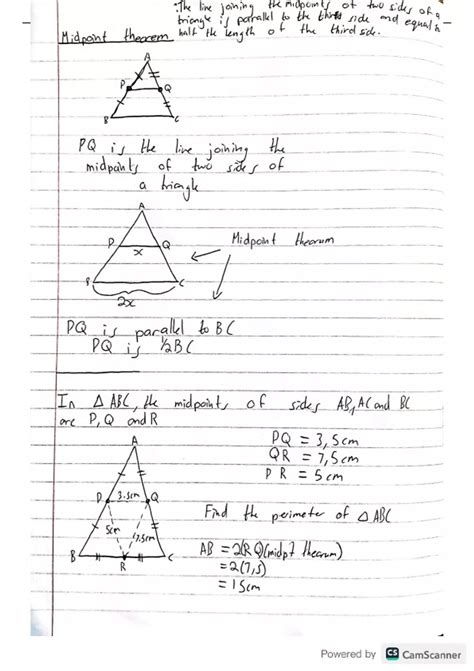 :The line joining the midpoints of two sides of a
triangle is parallel to the third side and equal to
Midpoint theorem half the length of the third side.
A
P Q
B C
PQ is the line joining the
midpoints of two sides of
a triangle
A
P Q
x
Midpoint theorum
B C
2x
PQ is parallel to BC
PQ is 1/2BC
In △ ABC, the midpoints of sides AB, AC and BC
are P, Q and R
A
PQ = 3,5cm
QR = 7,5cm
PR = 5cm
P 3.5cm Q
Find the perimeter of △ ABC
5cm 7.5cm
B R C
AB = 2(RQ)(midpt theorum)
= 2(7,5)
= 15cm
Powered by CS CamScanner